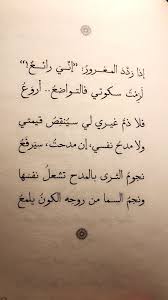 إذا ردّد المغرورُ: "إنّي رائعٌ!"
لزمتُ سكوتي فالتواضعُ.. أروعُ
فلا ذمُّ غيري لي سيُنقصُ قيمتي
ولا مدحُ نفسي، إن مدحتُ، سيَرفعُ
نجومُ الثرى بالمدح تشعلُ نفسَها
ونجمُ السما من روحِهِ الكونُ يلمعُ